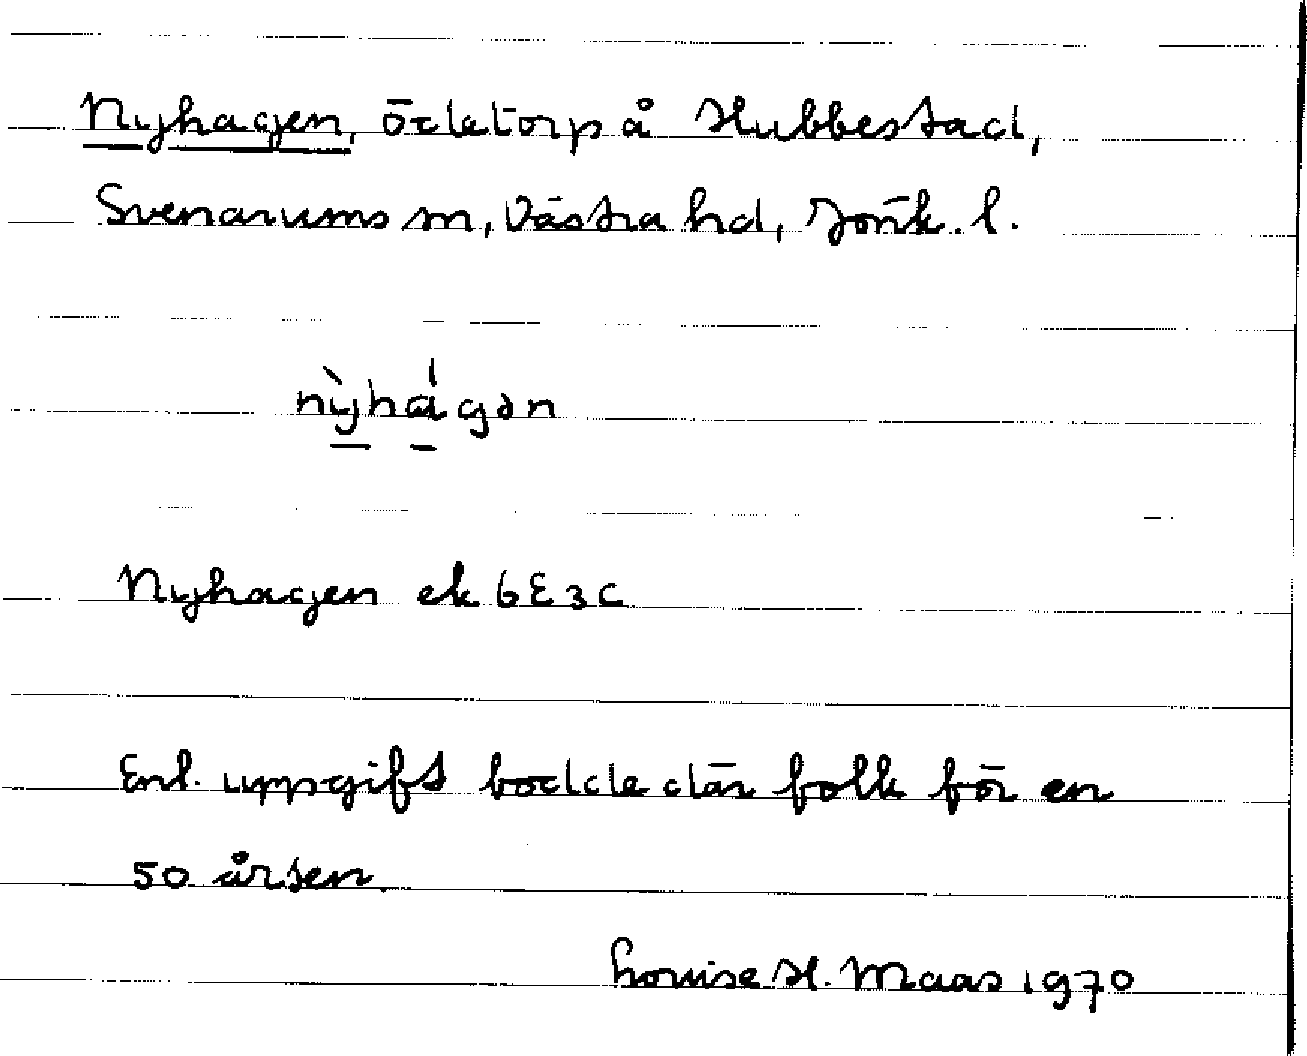 Nyhagen, ödetorp å Hubbestad,
Svenarums sn, Västra hd, Jönk. l.
nỳhágən
Nyhagen ek 6E3c
Enl. uppgift bodde där folk för en
50 år sen.
Louise H. Maas 1970